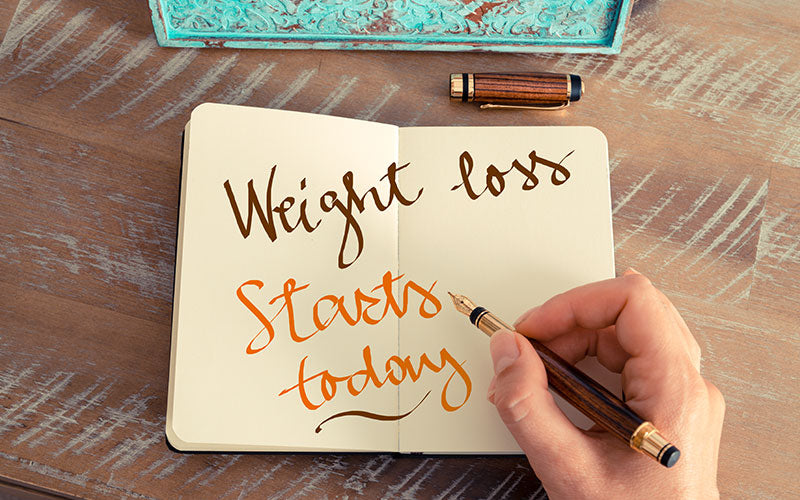 Weight loss
Starts
today